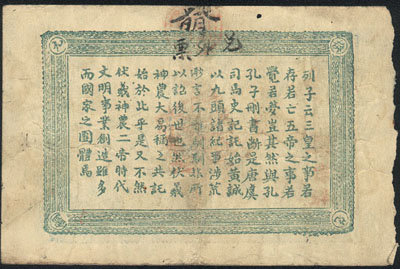 列子云三皇之事若
存若亡五帝之事若
覺若夢豈其然與孔
孔子刪書斷是唐虞
司馬史記託始黃誠
以九頭諸紀事涉荒
渺言不雅馴所
以詔後世也然伏羲
神農大易稱之共託
始於此乎是又不然
伏羲神農二帝時代
文明事業創造雖多
而國家之團體焉